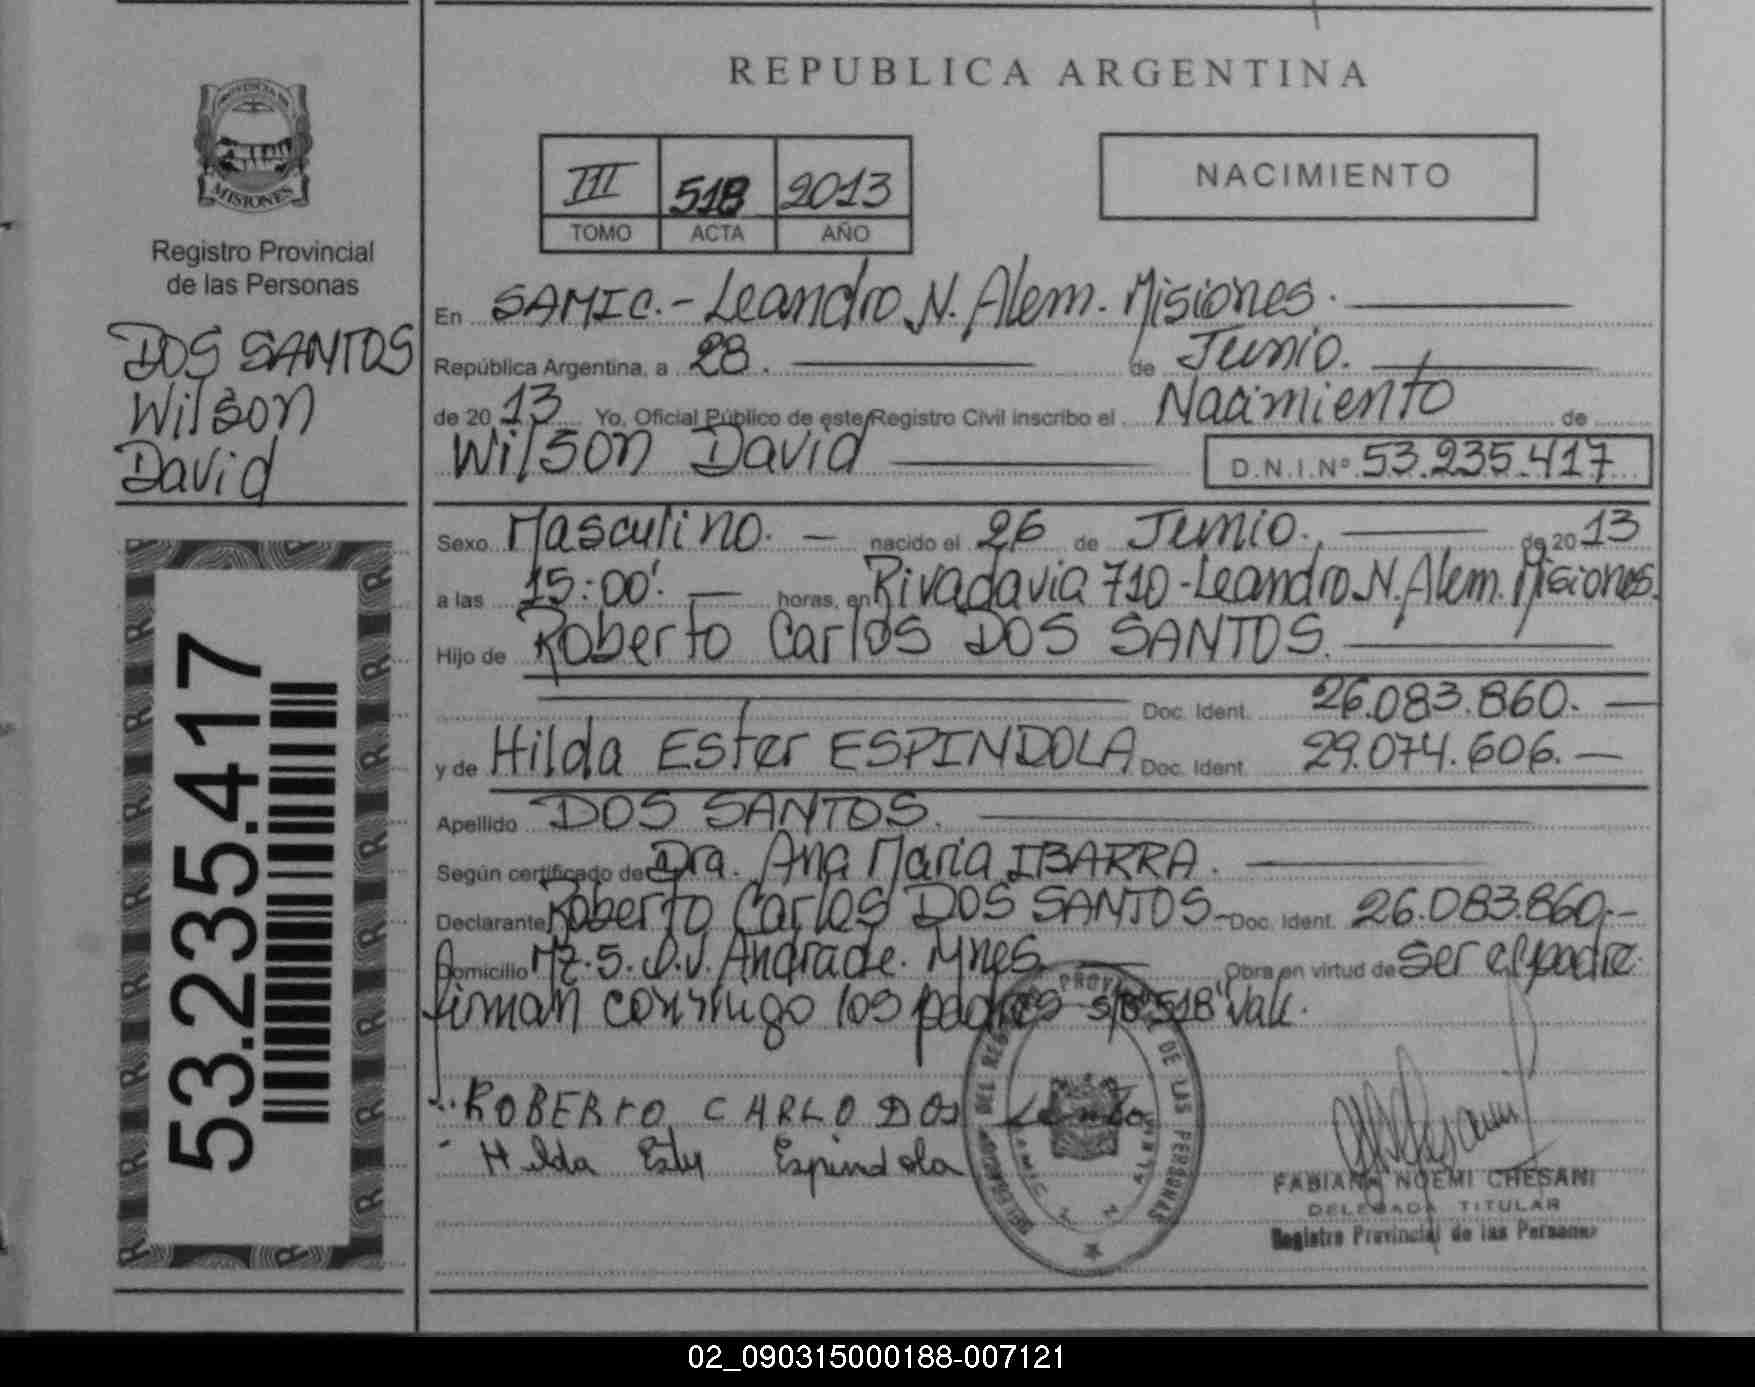 REPUBLICA ARGENTINA
PROVINCIA DE
MISIONES
Registro Provincial
de las Personas
DOS SANTOS
Wilson
David
53.235.417
III 518 2013
TOMO ACTA AÑO
NACIMIENTO
En SAMIC.- Leandro N. Alem. Misiones.
República Argentina, a 28. de Junio.
de 20 13 Yo, Oficial Público de este Registro Civil inscribo el Nacimiento de
Wilson David D.N.I.Nº 53.235.417
Sexo Masculino. nacido el 26 de Junio. de 20 13
a las 15:00'. horas, en Rivadavia 710 - Leandro N. Alem. Misiones.
Hijo de Roberto Carlos DOS SANTOS.
Doc. Ident. 26.083.860.
y de Hilda Ester ESPINDOLA Doc. Ident. 29.074.606.
Apellido DOS SANTOS.
Según certificado de Dra. Ana Maria IBARRA.
Declarante Roberto Carlos DOS SANTOS- Doc. Ident. 26.083.860.-
Domicilio Mz. 5. O.V. Andrade. Mnes. Obra en virtud de Ser el padre.
firman conmigo los padres s/b "518" Vale.
ROBERTO CARLO DOS
Hilda Espindola
DE LAS PERSONAS
FABIANA NOEMI CHESANI
DELEGADA TITULAR
Registro Provincial de las Personas
02_090315000188-007121